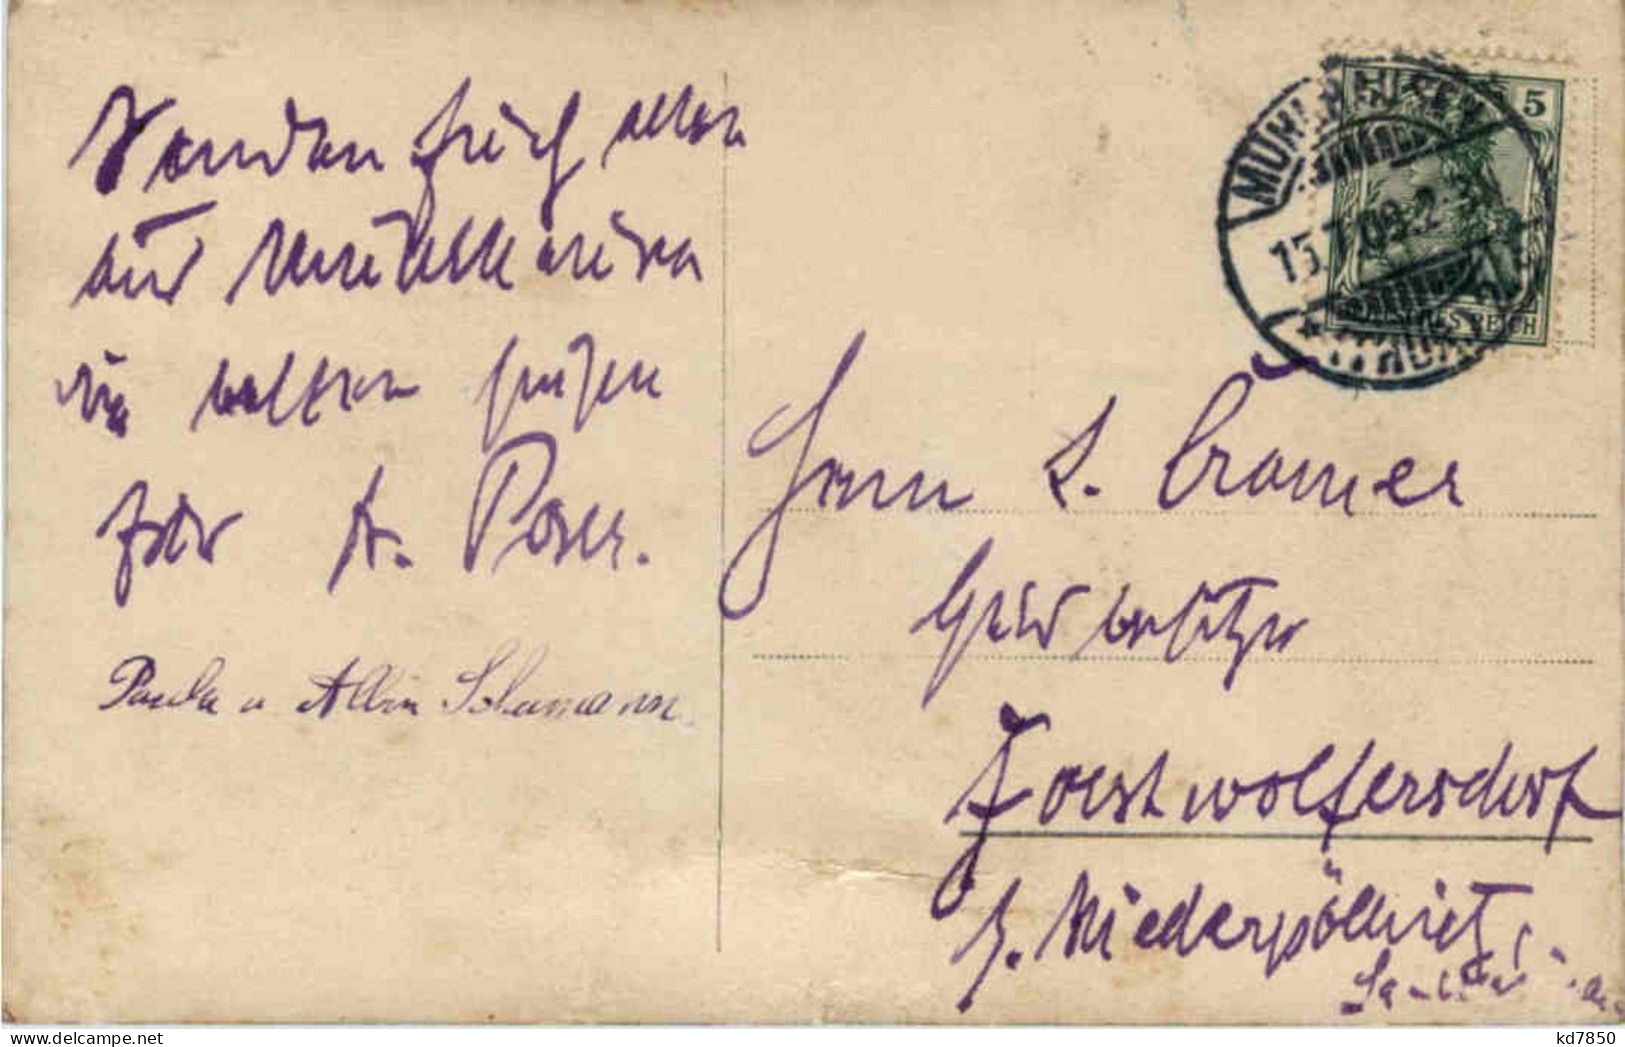 Senden Euch allen
aus Mühlhausen
die besten Grüße
A. Poser.
Paula u Albin Schumann.
MÜHLHAUSEN
15.7.09.2-3N
(THÜR.)
5
DEUTSCHES REICH
Herrn L. Cramer
Gutsbesitzer
Forstwolfersdorf
b. Niederpöllnitz